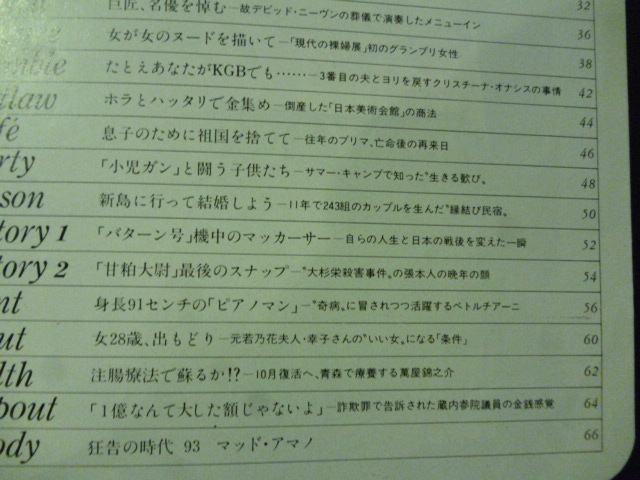 巨匠、名優を悼む—故デビッド・ニーヴンの葬儀で演奏したメニューイン 32
女が女のヌードを描いて—「現代の裸婦展」初のグランプリ女性 36
たとえあなたがKGBでも……—3番目の夫とヨリを戻すクリスチーナ・オナシスの事情 38
law ホラとハッタリで金集め—倒産した「日本美術会館」の商法 42
fé 息子のために祖国を捨てて—往年のプリマ、亡命後の再来日 44
rty 「小児ガン」と闘う子供たち—サマー・キャンプで知った"生きる歓び。 46
son 新島に行って結婚しよう—11年で243組のカップルを生んだ"縁結び民宿。 48
tory 1 「バターン号」機中のマッカーサー—自らの人生と日本の戦後を変えた一瞬 50
tory 2 「甘粕大尉」最後のスナップ—"大杉栄殺害事件。の張本人の晩年の顔 52
nt 身長91センチの「ピアノマン」—"奇病。に冒されつつ活躍するペトルチアーニ 54
ut 女28歳、出もどり—元若乃花夫人・幸子さんの"いい女。になる「条件」 56
lth 注腸療法で蘇るか!?—10月復活へ、青森で療養する萬屋錦之介 60
bout 「1億なんて大した額じゃないよ」—詐欺罪で告訴された蔵内参院議員の金銭感覚 62
ody 狂告の時代 93 マッド・アマノ 64
66